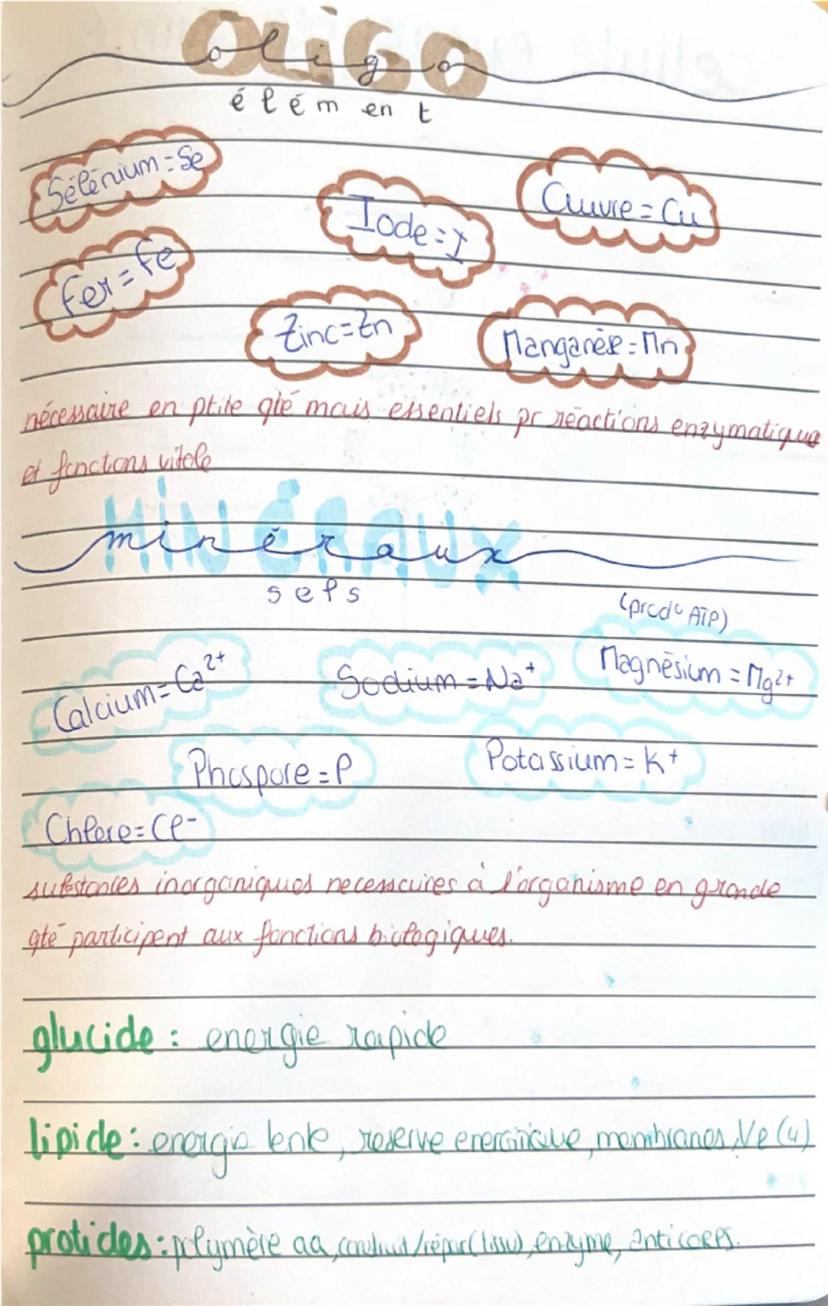 oligo
élément
Sélénium = Se
Iode = I
Cuivre = Cu
Fer = Fe
Zinc = Zn
Manganèse = Mn
nécessaire en ptite qté mais essentiels pr réactions enzymatique
et fonctions vitale
minéraux
sels
(prod° ATP)
Calcium = Ca²⁺
Sodium = Na⁺
Magnésium = Mg²⁺
Phospore = P
Potassium = K⁺
Chlore = Cl⁻
substances inorganiques necessaires à l'organisme en grande
qté participent aux fonctions biologiques.
glucide : energie rapide
lipide : energie lente, réserve energinique, membranes,
protides : polymère aa, /répar (tissu), enzyme, anticorps.